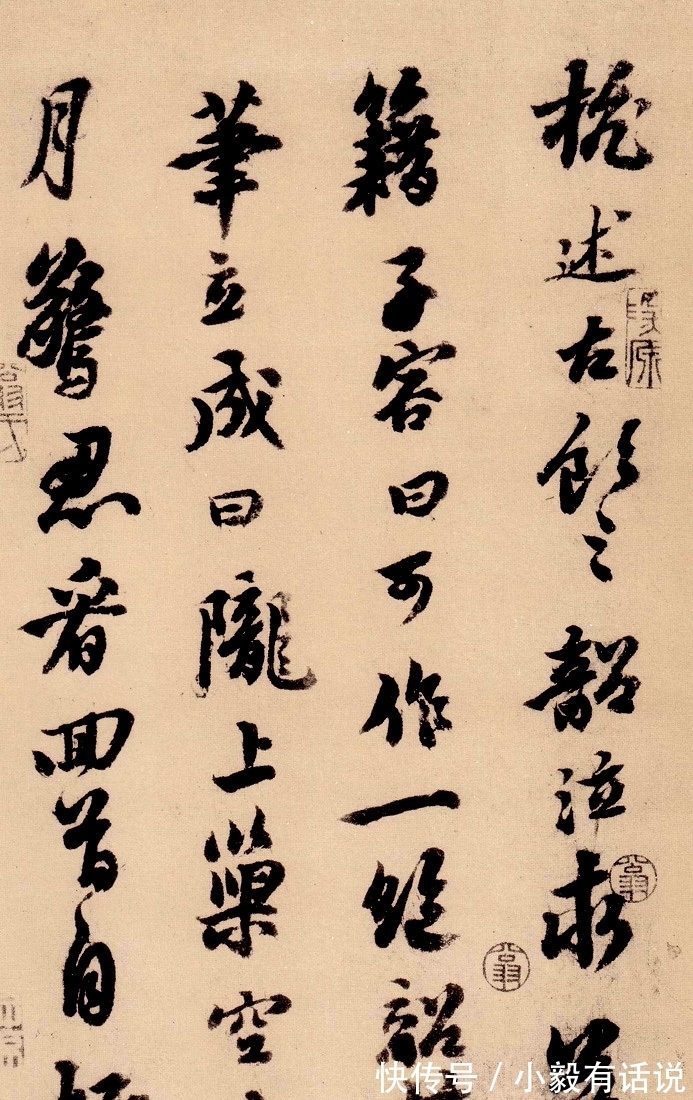 杭述古飲之韶泣求
籍子容曰可作一絕韶
筆立成曰隴上巢空
月驚忍看回首自
快传号 / 小毅有话说